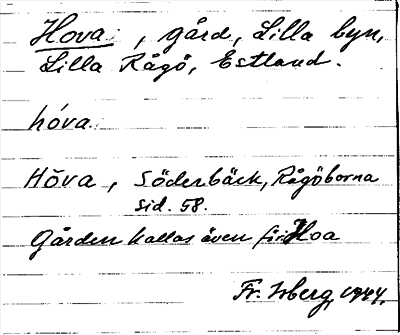 Hova , gård, Lilla byn,
Lilla Rågö, Estland.
hóva
Hŏva, Söderbäck, Rågöborna
sid. 58.
Gården kallas även för Hoa
Fr. Isberg, 1944.